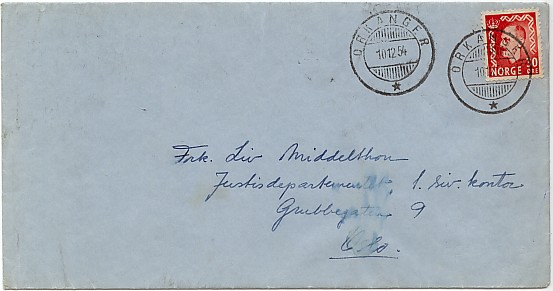 ORKANGER
10.12.54
ORKANGER
NORGE
Frk. Liv Middelthon
Justisdepartementet, 1. siv. kontor
Grubbegaten 9
Oslo.